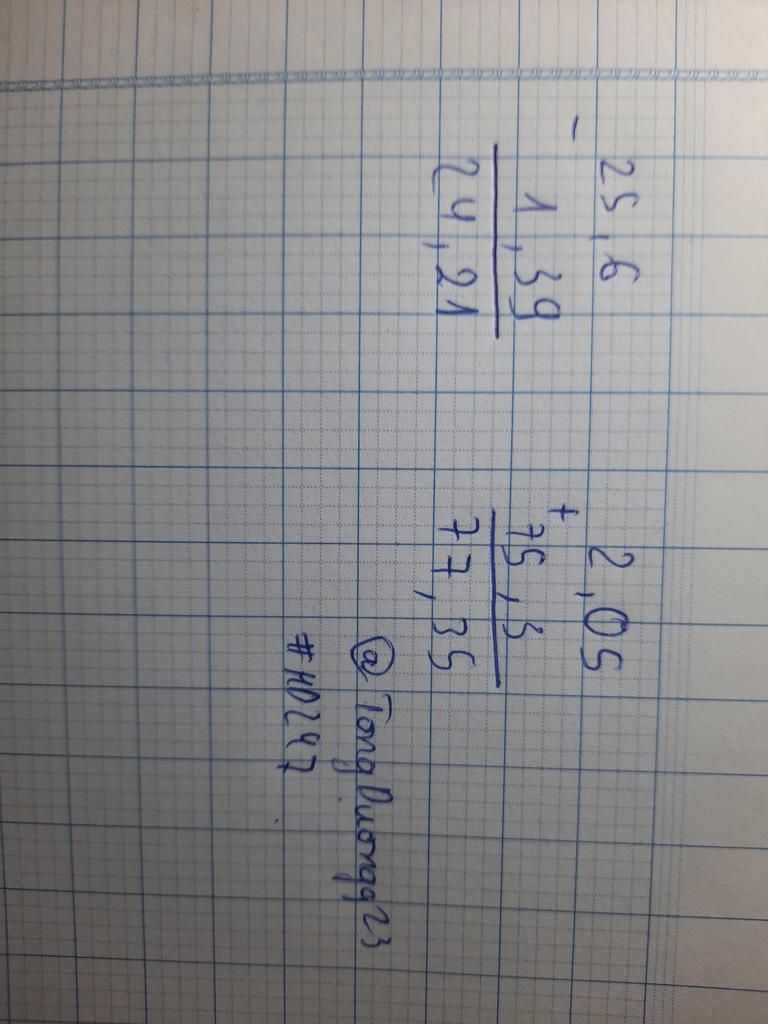 25,6
-
1,39
24,21
2,05
+
75,3
77,35
@TongDuongg23
#HD247